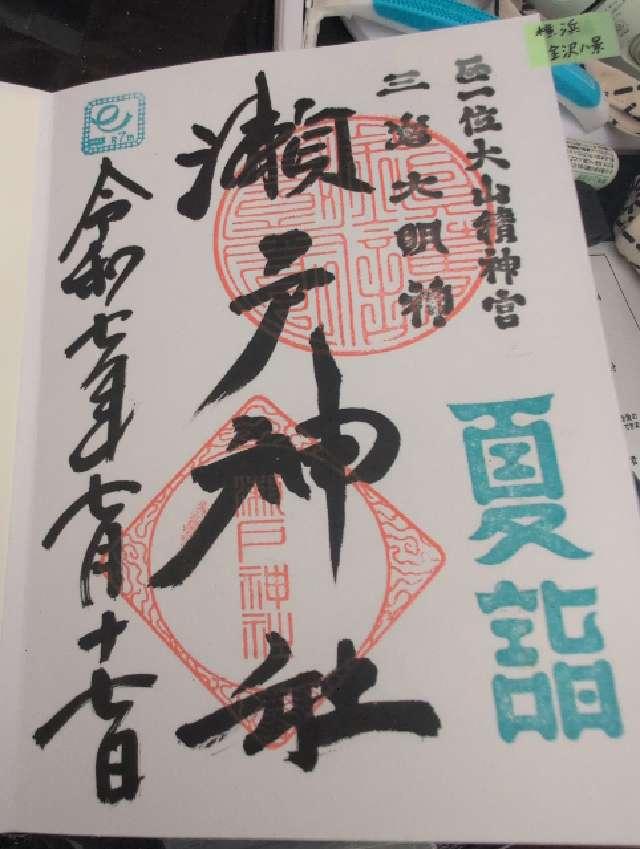 横浜
金沢八景
正一位大山積神宮
三島大明神
夏詣
瀬戸神社
瀬戸神社
令和七年七月十七日